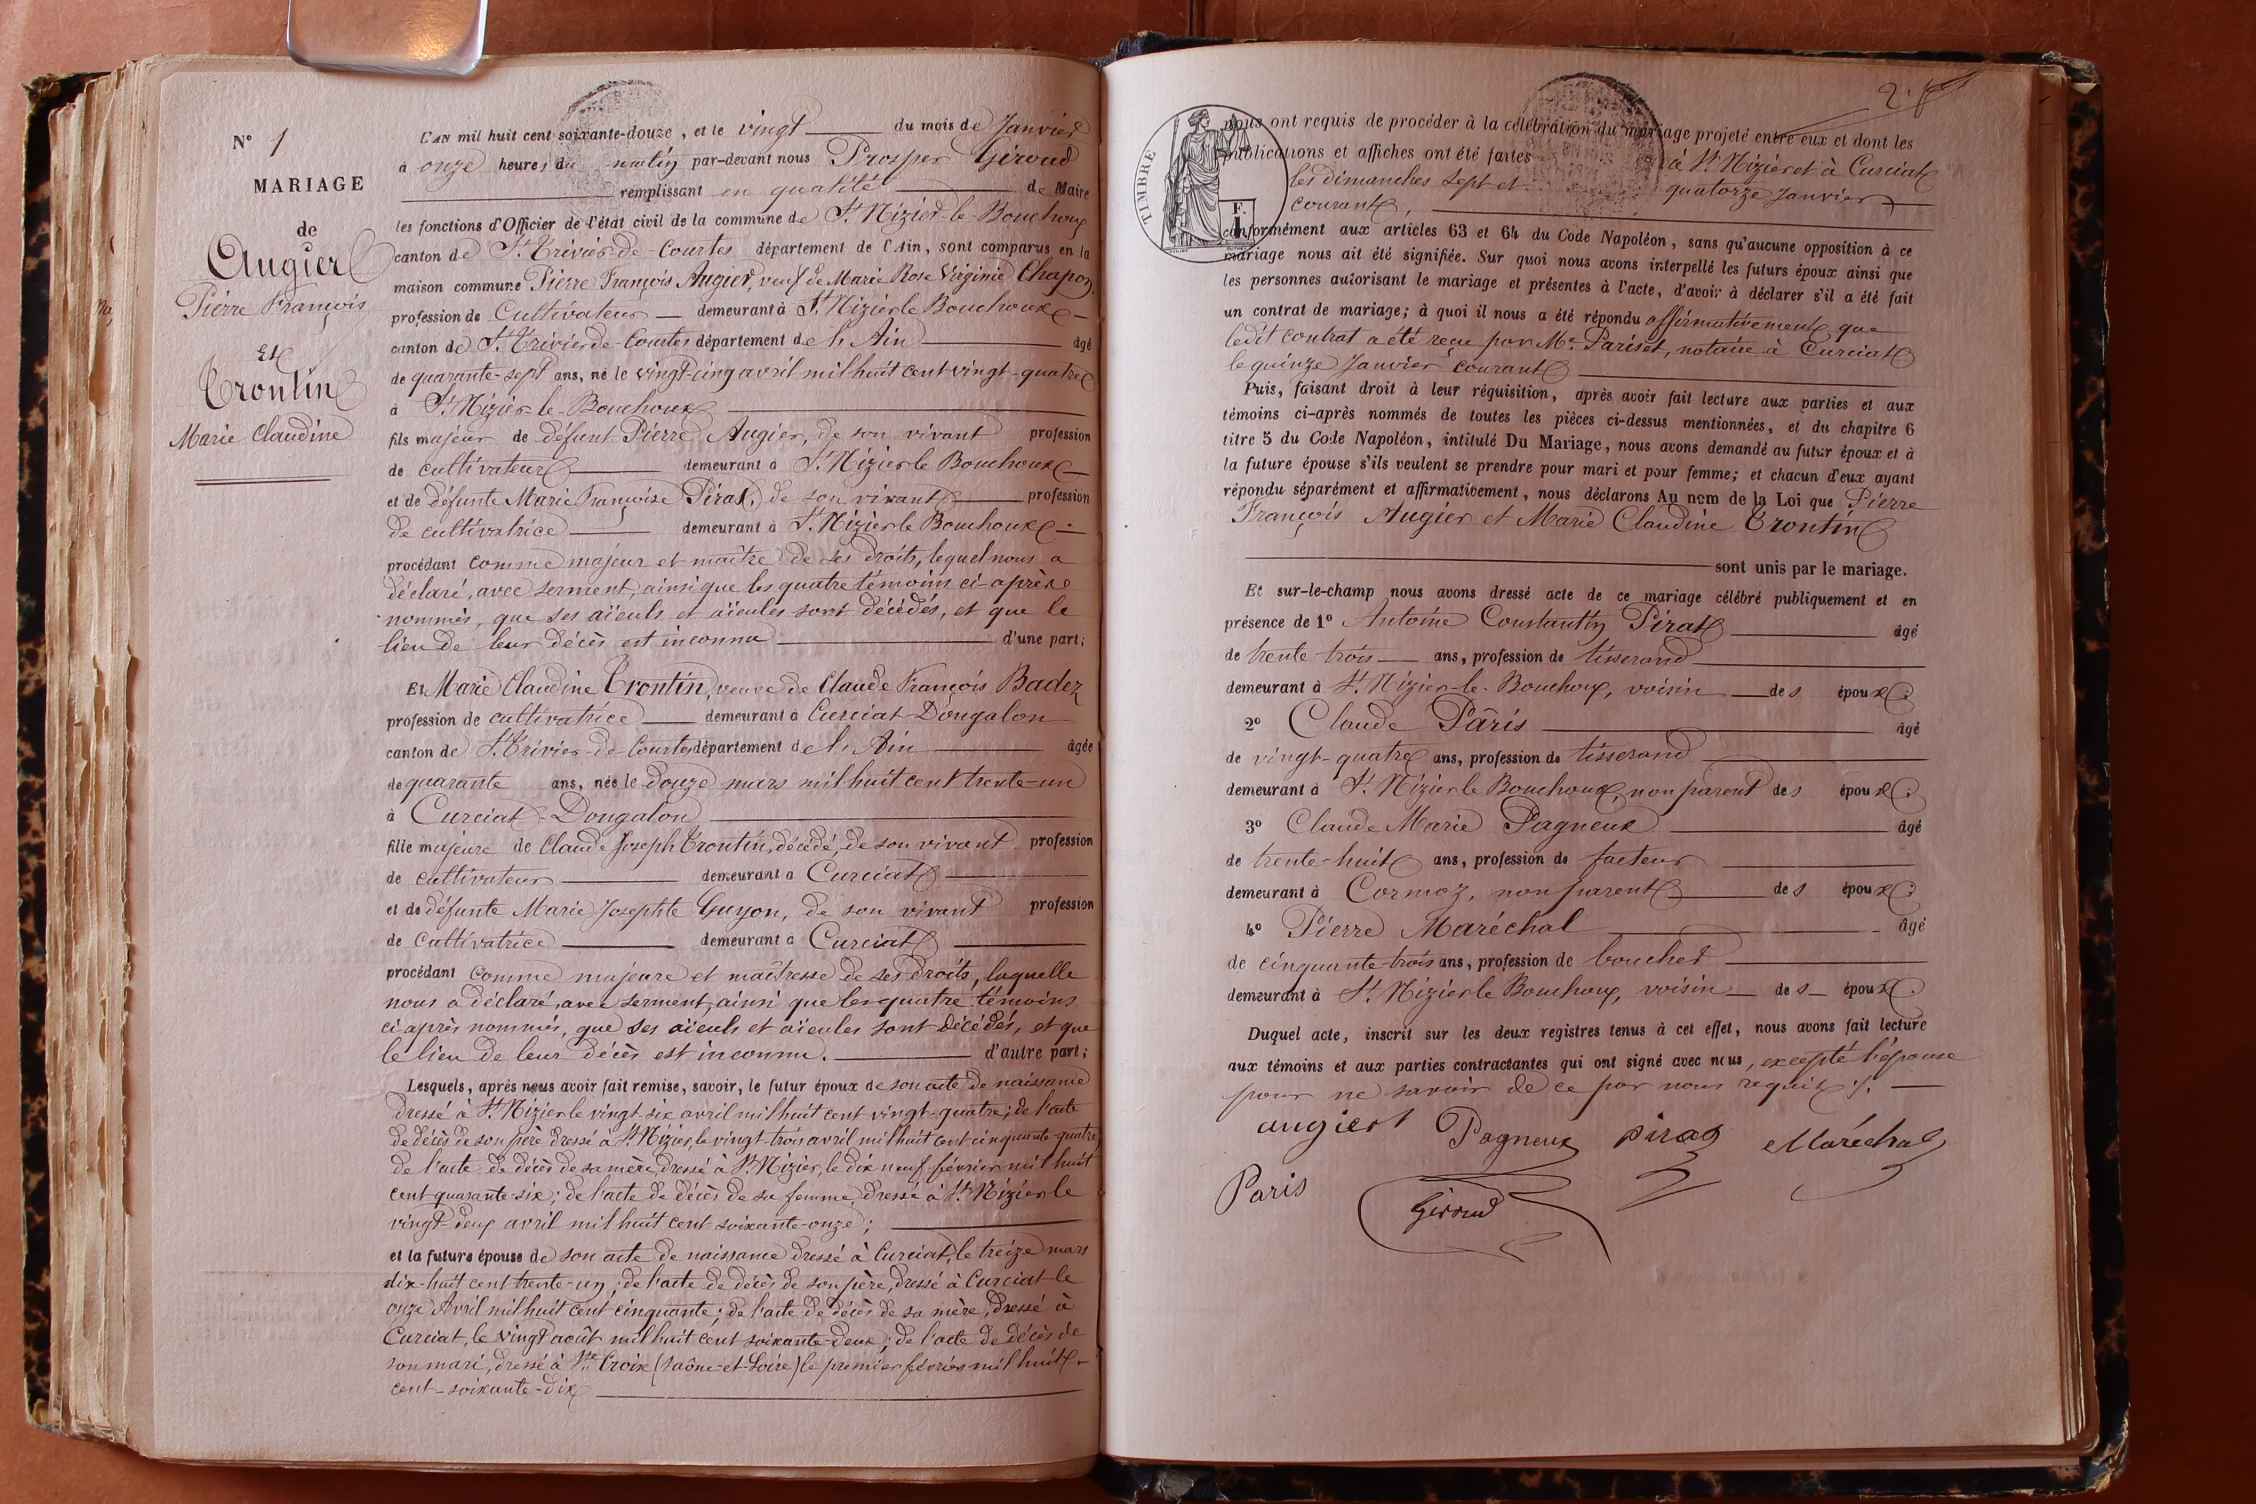 N° 1
MARIAGE
de
Augier
Pierre François
Et
Trontin
Marie Claudine
L'AN mil huit cent soixante-douze, et le vingt du mois de Janvier
à onze heures du matin par-devant nous Prosper Giroud
remplissant en qualité de Maire
les fonctions d'Officier de l'état civil de la commune de St Nizier-le-Bouchoux
canton de St Trivier-de-Courtes département de l'Ain, sont comparus en la
maison commune Pierre François Augier, veuf de Marie Rose Virginie Chapon,
profession de Cultivateur demeurant à St Nizier le Bouchoux
canton de St Trivier de Courtes département de l'Ain âgé
de quarante-sept ans, né le vingt-cinq avril mil huit cent vingt-quatre
à St Nizier-le-Bouchoux
fils majeur de défunt Pierre Augier, de son vivant profession
de cultivateur demeurant à St Nizier le Bouchoux
et de défunte Marie Françoise Pirat, de son vivant profession
de cultivatrice demeurant à St Nizier le Bouchoux
procédant comme majeur et maître de ses droits, lequel nous a
déclaré, avec serment, ainsi que les quatre témoins ci-après
nommés, que ses aïeuls et aïeules sont décédés, et que le
lieu de leur décès est inconnu d'une part;
Et Marie Claudine Trontin, veuve de Claude François Badez
profession de cultivatrice demeurant à Curciat-Dongalon
canton de St Trivier-de-Courtes département de l'Ain âgée
de quarante ans, née le douze mars mil huit cent trente-un
à Curciat-Dongalon
fille majeure de Claude Joseph Trontin, décédé, de son vivant profession
de cultivateur demeurant à Curciat
et de défunte Marie Josephte Guyon, de son vivant profession
de cultivatrice demeurant à Curciat
procédant comme majeure et maîtresse de ses droits, laquelle
nous a déclaré, avec serment, ainsi que les quatre témoins
ci après nommés, que ses aïeuls et aïeules sont décédés, et que
le lieu de leur décès est inconnu. d'autre part;
Lesquels, après nous avoir fait remise, savoir, le futur époux de son acte de naissance
dressé à St Nizier le vingt-six avril mil huit cent vingt-quatre; de l'acte
de décès de son père dressé à St Nizier, le vingt-trois avril mil huit cent cinquante-quatre;
de l'acte de décès de sa mère, dressé à St Nizier, le dix neuf février mil huit
cent quarante-six; de l'acte de décès de sa femme dressé à St Nizier le
vingt-deux avril mil huit cent soixante-onze;
et la future épouse de son acte de naissance dressé à Curciat, le treize mars
dix-huit cent trente-un; de l'acte de décès de son père, dressé à Curciat le
onze Avril mil huit cent cinquante; de l'acte de décès de sa mère, dressé à
Curciat, le vingt août mil huit cent soixante-deux; de l'acte de décès de
son mari, dressé à Ste Croix (Saône-et-Loire) le premier février mil huit
cent-soixante-dix
2.
TIMBRE
F.
1
nous ont requis de procéder à la célébration du mariage projeté entre eux et dont les
publications et affiches ont été faites à St Nizier et à Curciat
les dimanches sept et quatorze Janvier
courant,
conformément aux articles 63 et 64 du Code Napoléon, sans qu'aucune opposition à ce
mariage nous ait été signifiée. Sur quoi nous avons interpellé les futurs époux ainsi que
les personnes autorisant le mariage et présentes à l'acte, d'avoir à déclarer s'il a été fait
un contrat de mariage; à quoi il nous a été répondu affirmativement que
ledit contrat a été reçu par Me Pariset, notaire à Curciat
le quinze Janvier courant
Puis, faisant droit à leur réquisition, après avoir fait lecture aux parties et aux
témoins ci-après nommés de toutes les pièces ci-dessus mentionnées, et du chapitre 6
titre 5 du Code Napoléon, intitulé Du Mariage, nous avons demandé au futur époux et à
la future épouse s'ils veulent se prendre pour mari et pour femme; et chacun d'eux ayant
répondu séparément et affirmativement, nous déclarons Au nom de la Loi que Pierre
François Augier et Marie Claudine Trontin
sont unis par le mariage.
Et sur-le-champ nous avons dressé acte de ce mariage célébré publiquement et en
présence de 1° Antoine Constantin Pirat âgé
de trente trois ans, profession de tisserand
demeurant à St Nizier-le-Bouchoux, voisin des époux;
2° Claude Pâris âgé
de vingt-quatre ans, profession de tisserand
demeurant à St Nizier le Bouchoux, non parent des époux;
3° Claude Marie Pagneux âgé
de trente-huit ans, profession de facteur
demeurant à Cormoz, non parent des époux;
4° Pierre Maréchal âgé
de cinquante-trois ans, profession de boucher
demeurant à St Nizier le Bouchoux, voisin des époux.
Duquel acte, inscrit sur les deux registres tenus à cet effet, nous avons fait lecture
aux témoins et aux parties contractantes qui ont signé avec nous, excepté l'épouse
pour ne savoir de ce par nous requis.
augier Pagneux pirat Maréchal
Paris
Giroud